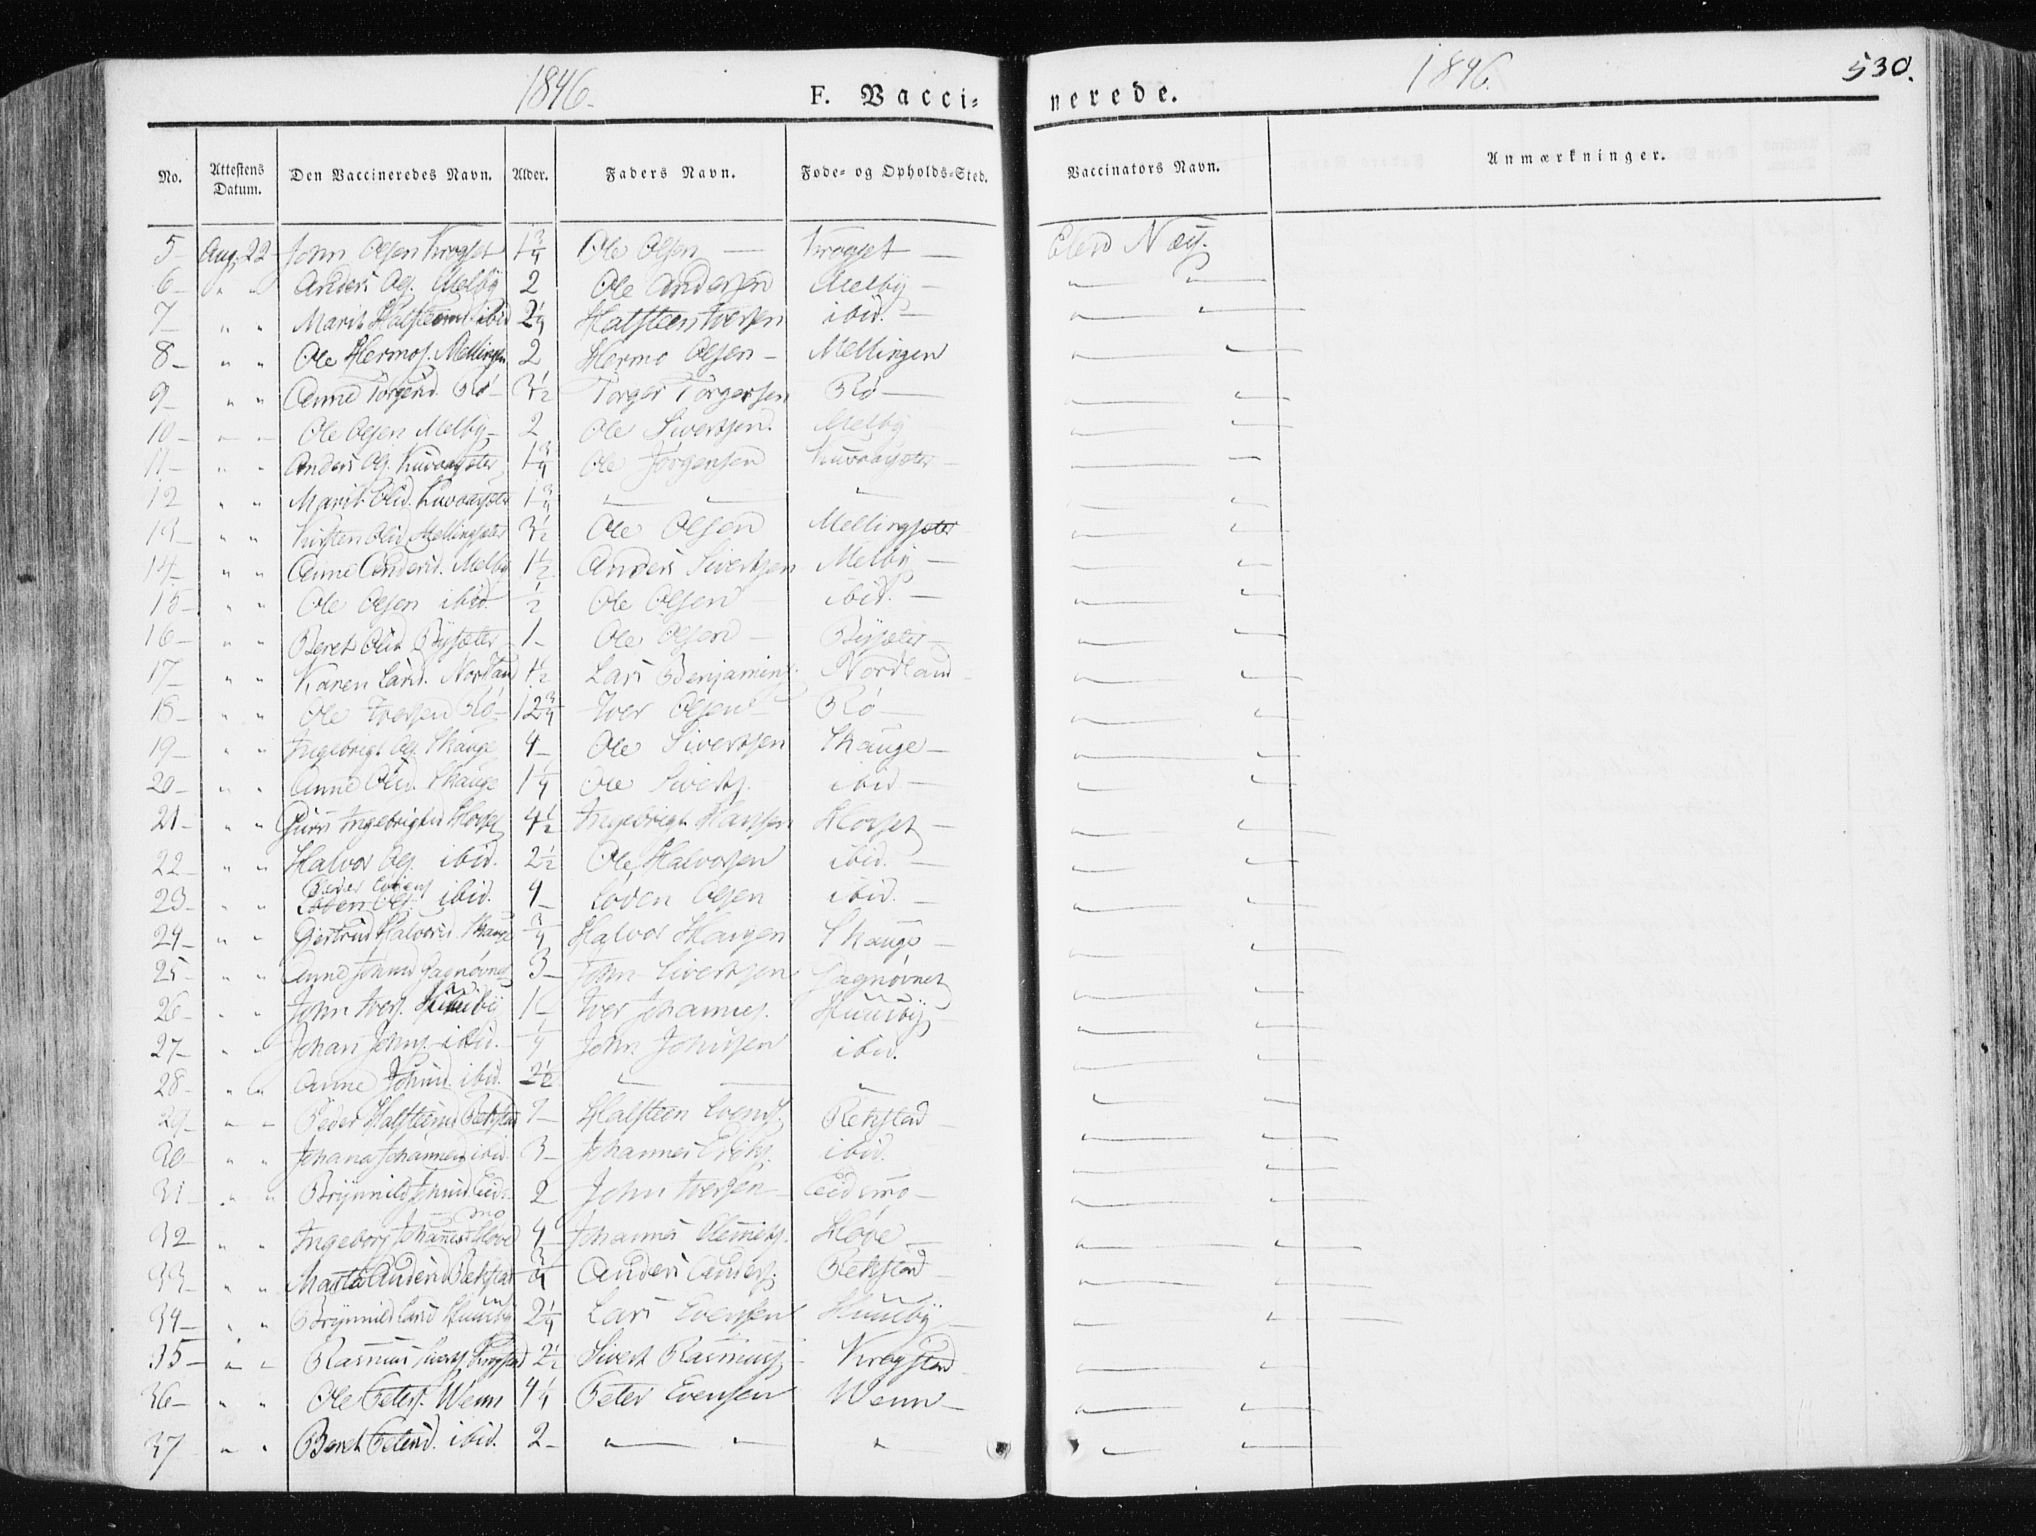 1846.
F. Vacci=
nerede.
1846.
530.
No. Attestens Datum. Den Vaccineredes Navn. Alder. Faders Navn. Føde- og Opholds-Sted. Vaccinators Navn. Anmærkninger.
5- Aug. 22 John Olsen Krogset 1 3/4 Ole Olsen — Krogset — Næss.
6- " " Anders Ols. Melby 2 Ole Andersen Melby — "
7- " " Marit Halsteensd ibid 2 1/4 Halsteen Iversen ibid. — "
8- " " Ole Hermos. Mellingen 2 Hermo Olsen — Mellingen "
9- " " Anne Torgersd. Rø 3 1/2 Torger Torgersen Rø — "
10- " " Ole Olsen Melby- 2 Ole Sivertsen Melby "
11- " " Anders Ols. 1 3/4 Ole Jørgensen "
12 " " Marit Olsd. 1 3/4 " " " "
13- " " Kirsten Olsd Mellingsæter 3 1/2 Ole Olsen Mellingsæter "
14- " " Anne Andersd. Melby 1 1/2 Anders Sivertsen Melby — "
15- " " Ole Olsen ibid. 1/2 Ole Olsen ibid. — "
16- " " Beret Olsd Bysæter 1- Ole Olsen — Bysæter — "
17- " " Karen Larsd. Nordland 1 1/2 Lars Benjamins. Nordland "
18- " " Ole Iversen Rø- 12 3/4 Iver Olsen — Rø — "
19- " " Ingebrigt Ols. Skauge 4- Ole Sivertsen Skauge — "
20- " " Anne Olsd. Skauge 1 1/4 Ole Siverts. ibid — "
21- " " Guri Ingebrigtsd Hovset 4 1/2 Ingebrigt Hansen Hovset — "
22- " " Halvor Ols. ibid. 2 1/2 Ole Halvorsen ibid. — "
23- " " Peder ibid. 4- Loden Olsen ibid. — "
24- " " Gjertrud Halvorsd Skauge 3/4 Halvor Skauge — "
25- " " Anne Johnsd Gagnøvnet 3- John Sivertsen Gagnøvnet "
26- " " John Ivers. Huusby 1- Iver Johannes. Huusby — "
27- " " Johan Johns. ibid. 1/4 John Johnsen ibid. "
28- " " Anne Johnsd. ibid. 2 1/2 " " "
29- " " Peder Halsteens Rekstad Halsteen Evens. Rekstad — "
30- " " Johannesd ibid. 3- Johannes Eriks. ibid. "
31- " " Brynnild Johnsd. Eids- 2- John Iversen — Eidsmo — "
mo
32- " " Ingeborg Johannesd Høve 4- Johannes Høve — "
33- " " Marta Andersd Rekstad 3/4 Anders Anders. Rekstad — "
34- " " Brynnild Larsd Huusby 2 1/4 Lars Evensen Huusby — "
35- " " Rasmus Siverts Krogstad 2 1/2 Sivert Rasmuss. Krogstad "
36- " " Ole Peters. Wenn 4 1/4 Peter Evensen Wenn — "
37 " " Beret Petersd. ibid. 2- " " " "